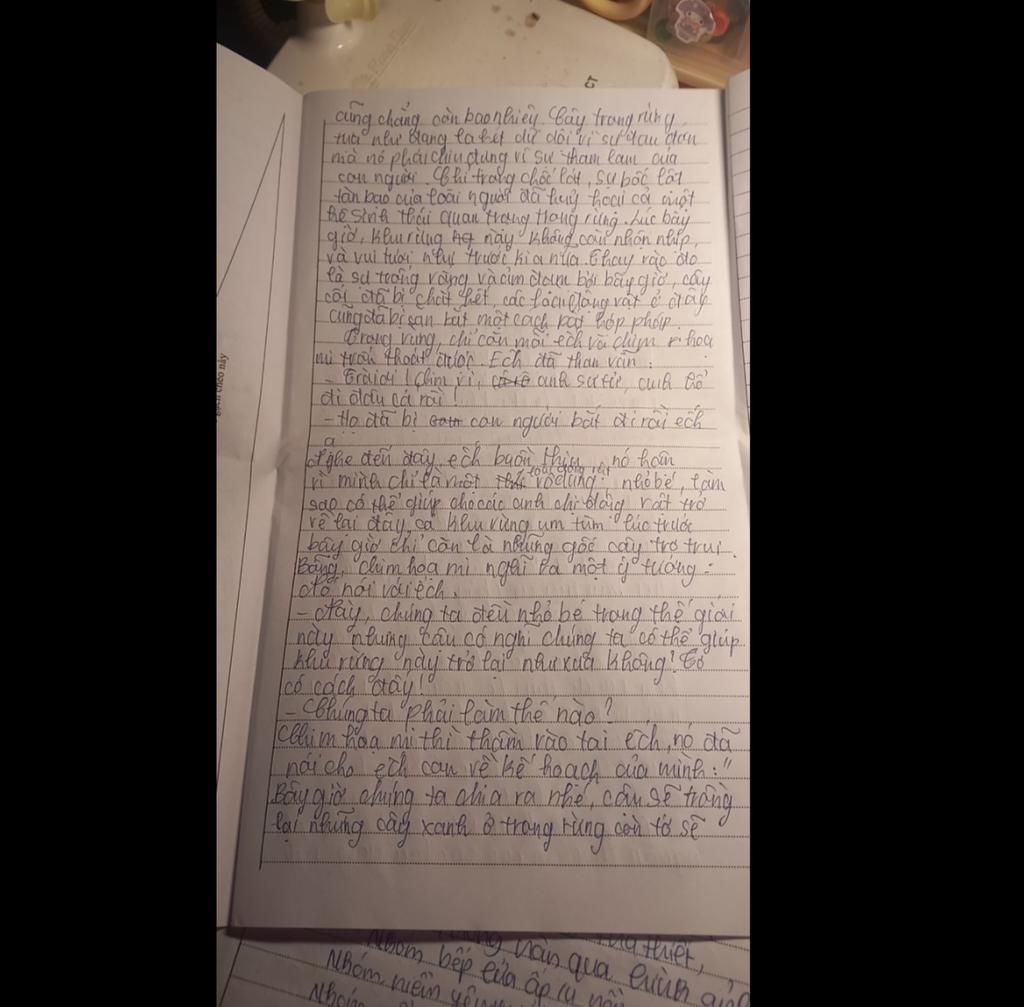 cũng chẳng còn bao nhiêu. Cây trong rừng
như đang la hét dữ dội vì sự đau đớn
mà nó phải chịu đựng vì sự tham lam của
con người. Chỉ trong chốc lát, sự bóc lột
tàn bạo của loài người đã huỷ hoại cả một
hệ sinh thái quan trọng trong rừng. Lúc bấy
giờ, khu rừng này không còn nhộn nhịp,
và vui tươi như trước kia nữa. Thay vào đó
là sự trống vắng và ảm đạm bởi bây giờ, cây
cối đã bị chặt hết, các loài động vật ở đây
cũng đã bị săn bắt một cách hợp pháp.
Trong rừng, chỉ còn mỗi ếch và chim hoạ
mi thoát được. Ếch đã than vãn:
- Trời ơi! Chim ri, anh sư tử, anh hổ
đi đâu cả rồi!
- Họ đã bị con người bắt đi rồi ếch
ạ
Nghe đến đây, ếch buồn thiu, nó hờn
vì mình chỉ là một loài động vật nhỏ bé, làm
sao có thể giúp cho các anh chị động vật trở
về lại đây, cả khu rừng um tùm lúc trước
bây giờ chỉ còn là những gốc cây trơ trụi.
Bỗng, chim hoạ mi nghĩ ra một ý tưởng.
nói với ếch.
- Này, chúng ta đều nhỏ bé trong thế giới
này nhưng cậu có nghĩ chúng ta có thể giúp
khu rừng này trở lại như xưa không! Tớ
có cách đấy!
- Chúng ta phải làm thế nào?
Chim hoạ mi thì thầm vào tai ếch, nó đã
nói cho ếch con về kế hoạch của mình: "
Bây giờ chúng ta chia ra nhé, cậu sẽ trồng
lại những cây xanh ở trong rừng còn tớ sẽ
qua
Nhóm bếp lửa ấp iu
Nhóm niềm yêu
Nhóm